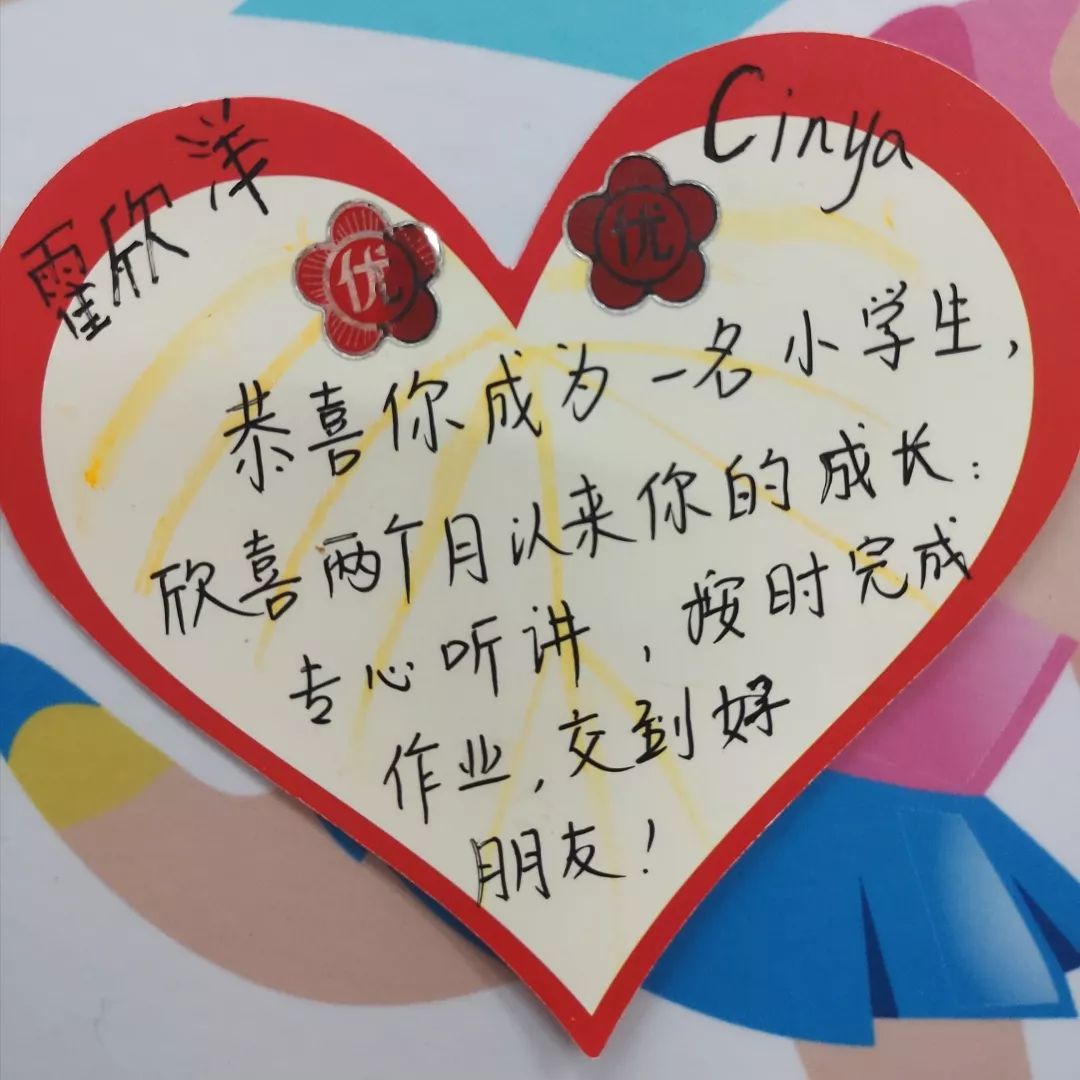 霍欣洋
Cinya
优
优
恭喜你成为一名小学生,
欣喜两个月以来你的成长:
专心听讲,按时完成
作业,交到好
朋友!